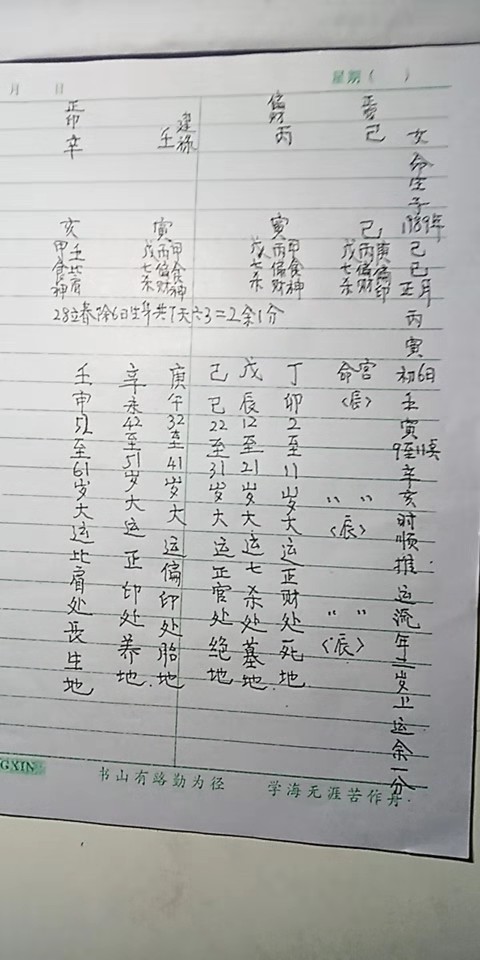 月 日 星期( )
女命生于1989年己巳正月丙寅初6日壬寅9至11点辛亥时顺推运流年二岁上运余一分
正官 己
偏财 丙
建禄 壬
正印 辛
巳 庚偏印 丙偏财 戊七杀
寅 甲食神 丙偏财 戊七杀
寅 甲食神 丙偏财 戊七杀
亥 壬比肩 甲食神
28立春除6日生年共7天六3=2余1分
命宫〈辰〉 " " 〈辰〉 " " 〈辰〉
丁卯2至11岁大运正财处死地
戊辰12至21岁大运七杀处墓地.
己巳22至31岁大运正官处绝地
庚午32至41岁大运偏印处胎地
辛未42至51岁大运正印处养地.
壬申52至61岁大运比肩处长生地
GXIN 书山有路勤为径 学海无涯苦作舟